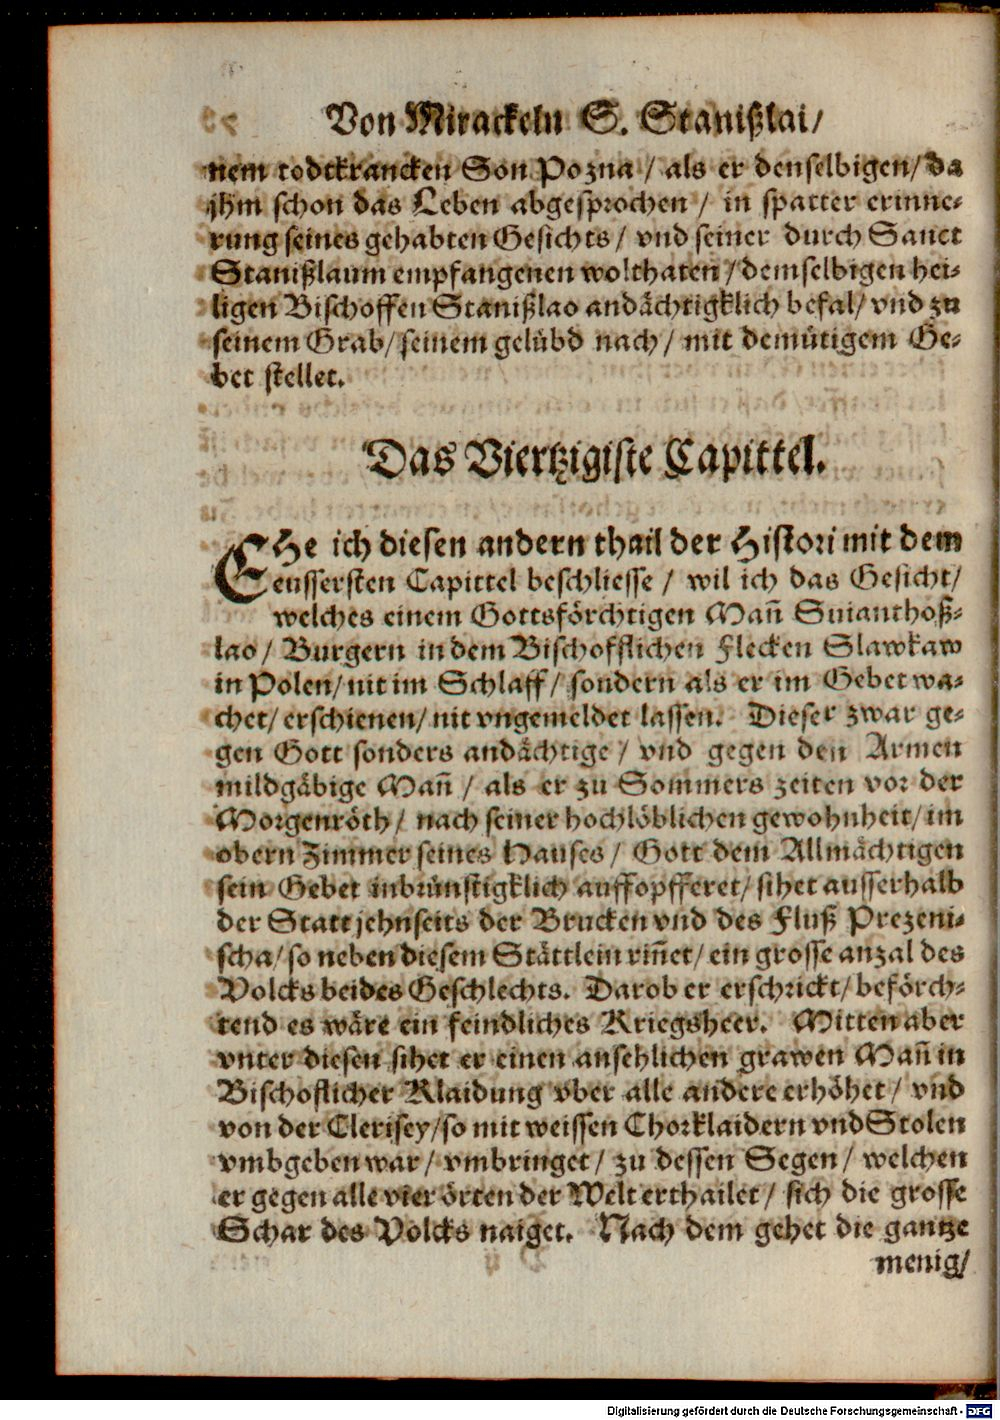 Von Mirackeln S. Stanißlai/
nem todtkrancken Son Pozna / als er denselbigen/ da
jhm schon das Leben abgesprochen / in spatter erinne-
rung seines gehabten Gesichts/ vnd seiner durch Sanct
Stanißlaum empfangenen wolthaten / demselbigen hei-
ligen Bischoffen Stanißlao andächtigklich befal/ vnd zu
seinem Grab/ seinem gelübd nach/ mit demütigem Ge-
bet stellet.
Das Viertzigiste Capittel.
EHe ich diesen andern thail der Histori mit dem
eussersten Capittel beschliesse / wil ich das Gesicht/
welches einem Gottsförchtigen Mañ Suianthoß-
lao/ Burgern in dem Bischofflichen Flecken Slawkaw
in Polen/ nit im Schlaff/ sondern als er im Gebet wa-
chet/ erschienen/ nit vngemeldet lassen. Dieser zwar ge-
gen Gott sonders andächtige / vnd gegen den Armen
mildgäbige Mañ / als er zu Sommers zeiten vor der
Morgenröth/ nach seiner hochlöblichen gewohnheit/ im
obern Zimmer seines Hauses/ Gott dem Allmächtigen
sein Gebet inbrünstigklich auffopfferet/ sihet ausserhalb
der Statt jehnseits der Brucken vnd des Fluß Prezeni-
scha/ so neben diesem Stättlein riñet/ ein grosse anzal des
Volcks beides Geschlechts. Darob er erschrickt/ beförch-
tend es wäre ein feindliches Kriegsheer. Mitten aber
vnter diesen sihet er einen ansehlichen grawen Mañ in
Bischoflicher Klaidung vber alle andere erhöhet/ vnd
von der Clerisey/ so mit weissen Chorklaidern vnd Stolen
vmbgeben war/ vmbringet/ zu dessen Segen/ welchen
er gegen alle vier örten der Welt erthailet/ sich die grosse
Schar des Volcks naiget. Nach dem gehet die gantze
menig/
Digitalisierung gefördert durch die Deutsche Forschungsgemeinschaft - DFG